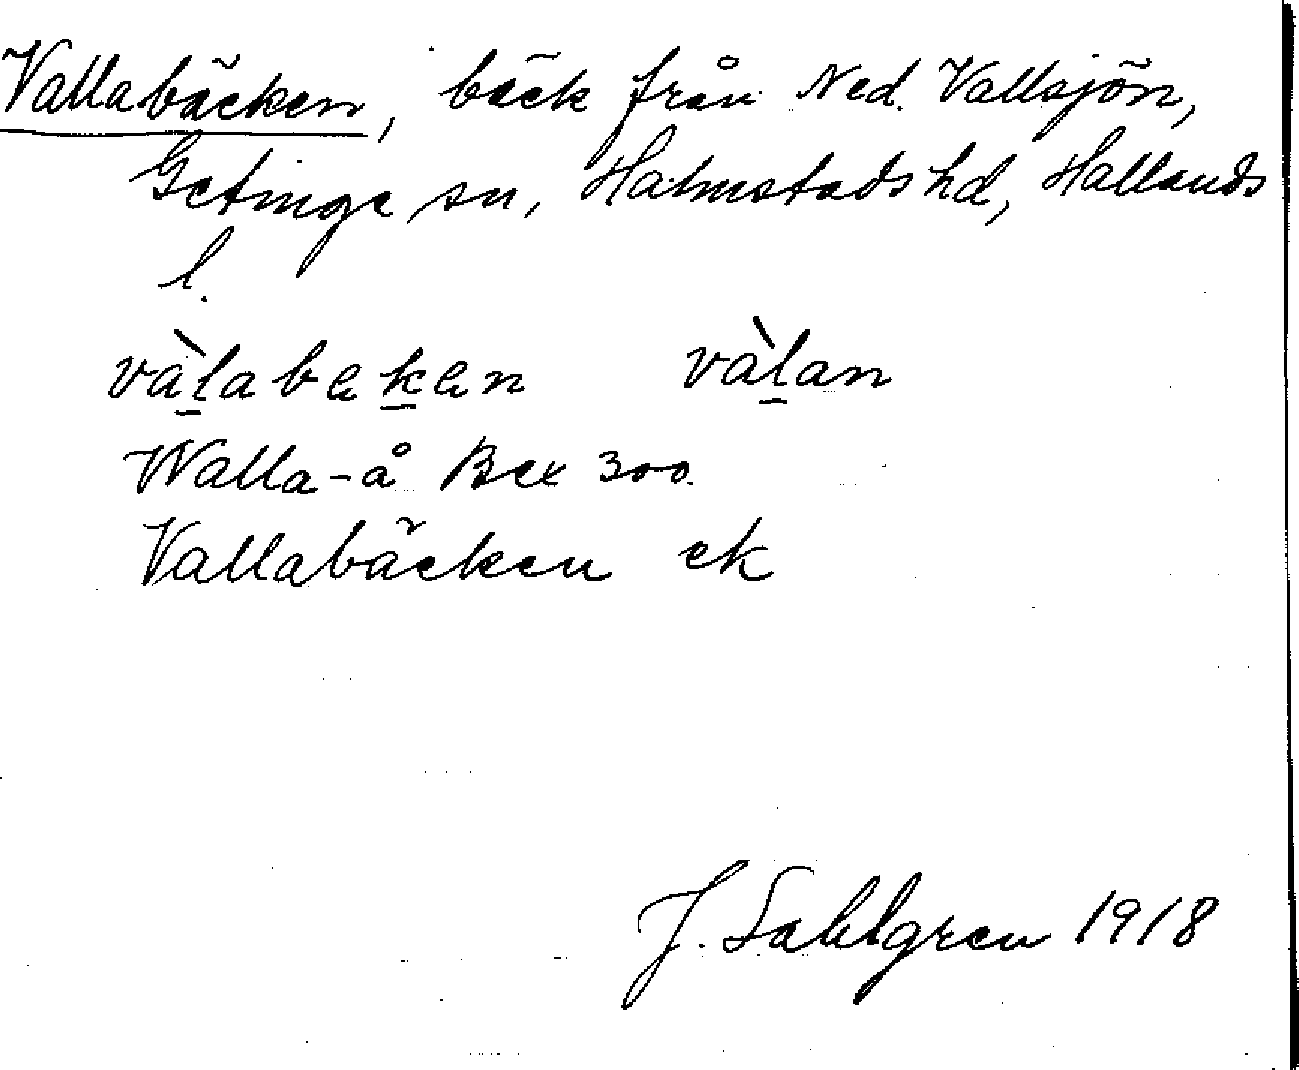 Vallabäcken, bäck från Ned. Vallsjön,
Getinge sn, Halmstads hd, Hallands
l.
vàlabeken vàlan
Walla-å Bex 300.
Vallabäcken ek
J. Sahlgren 1918